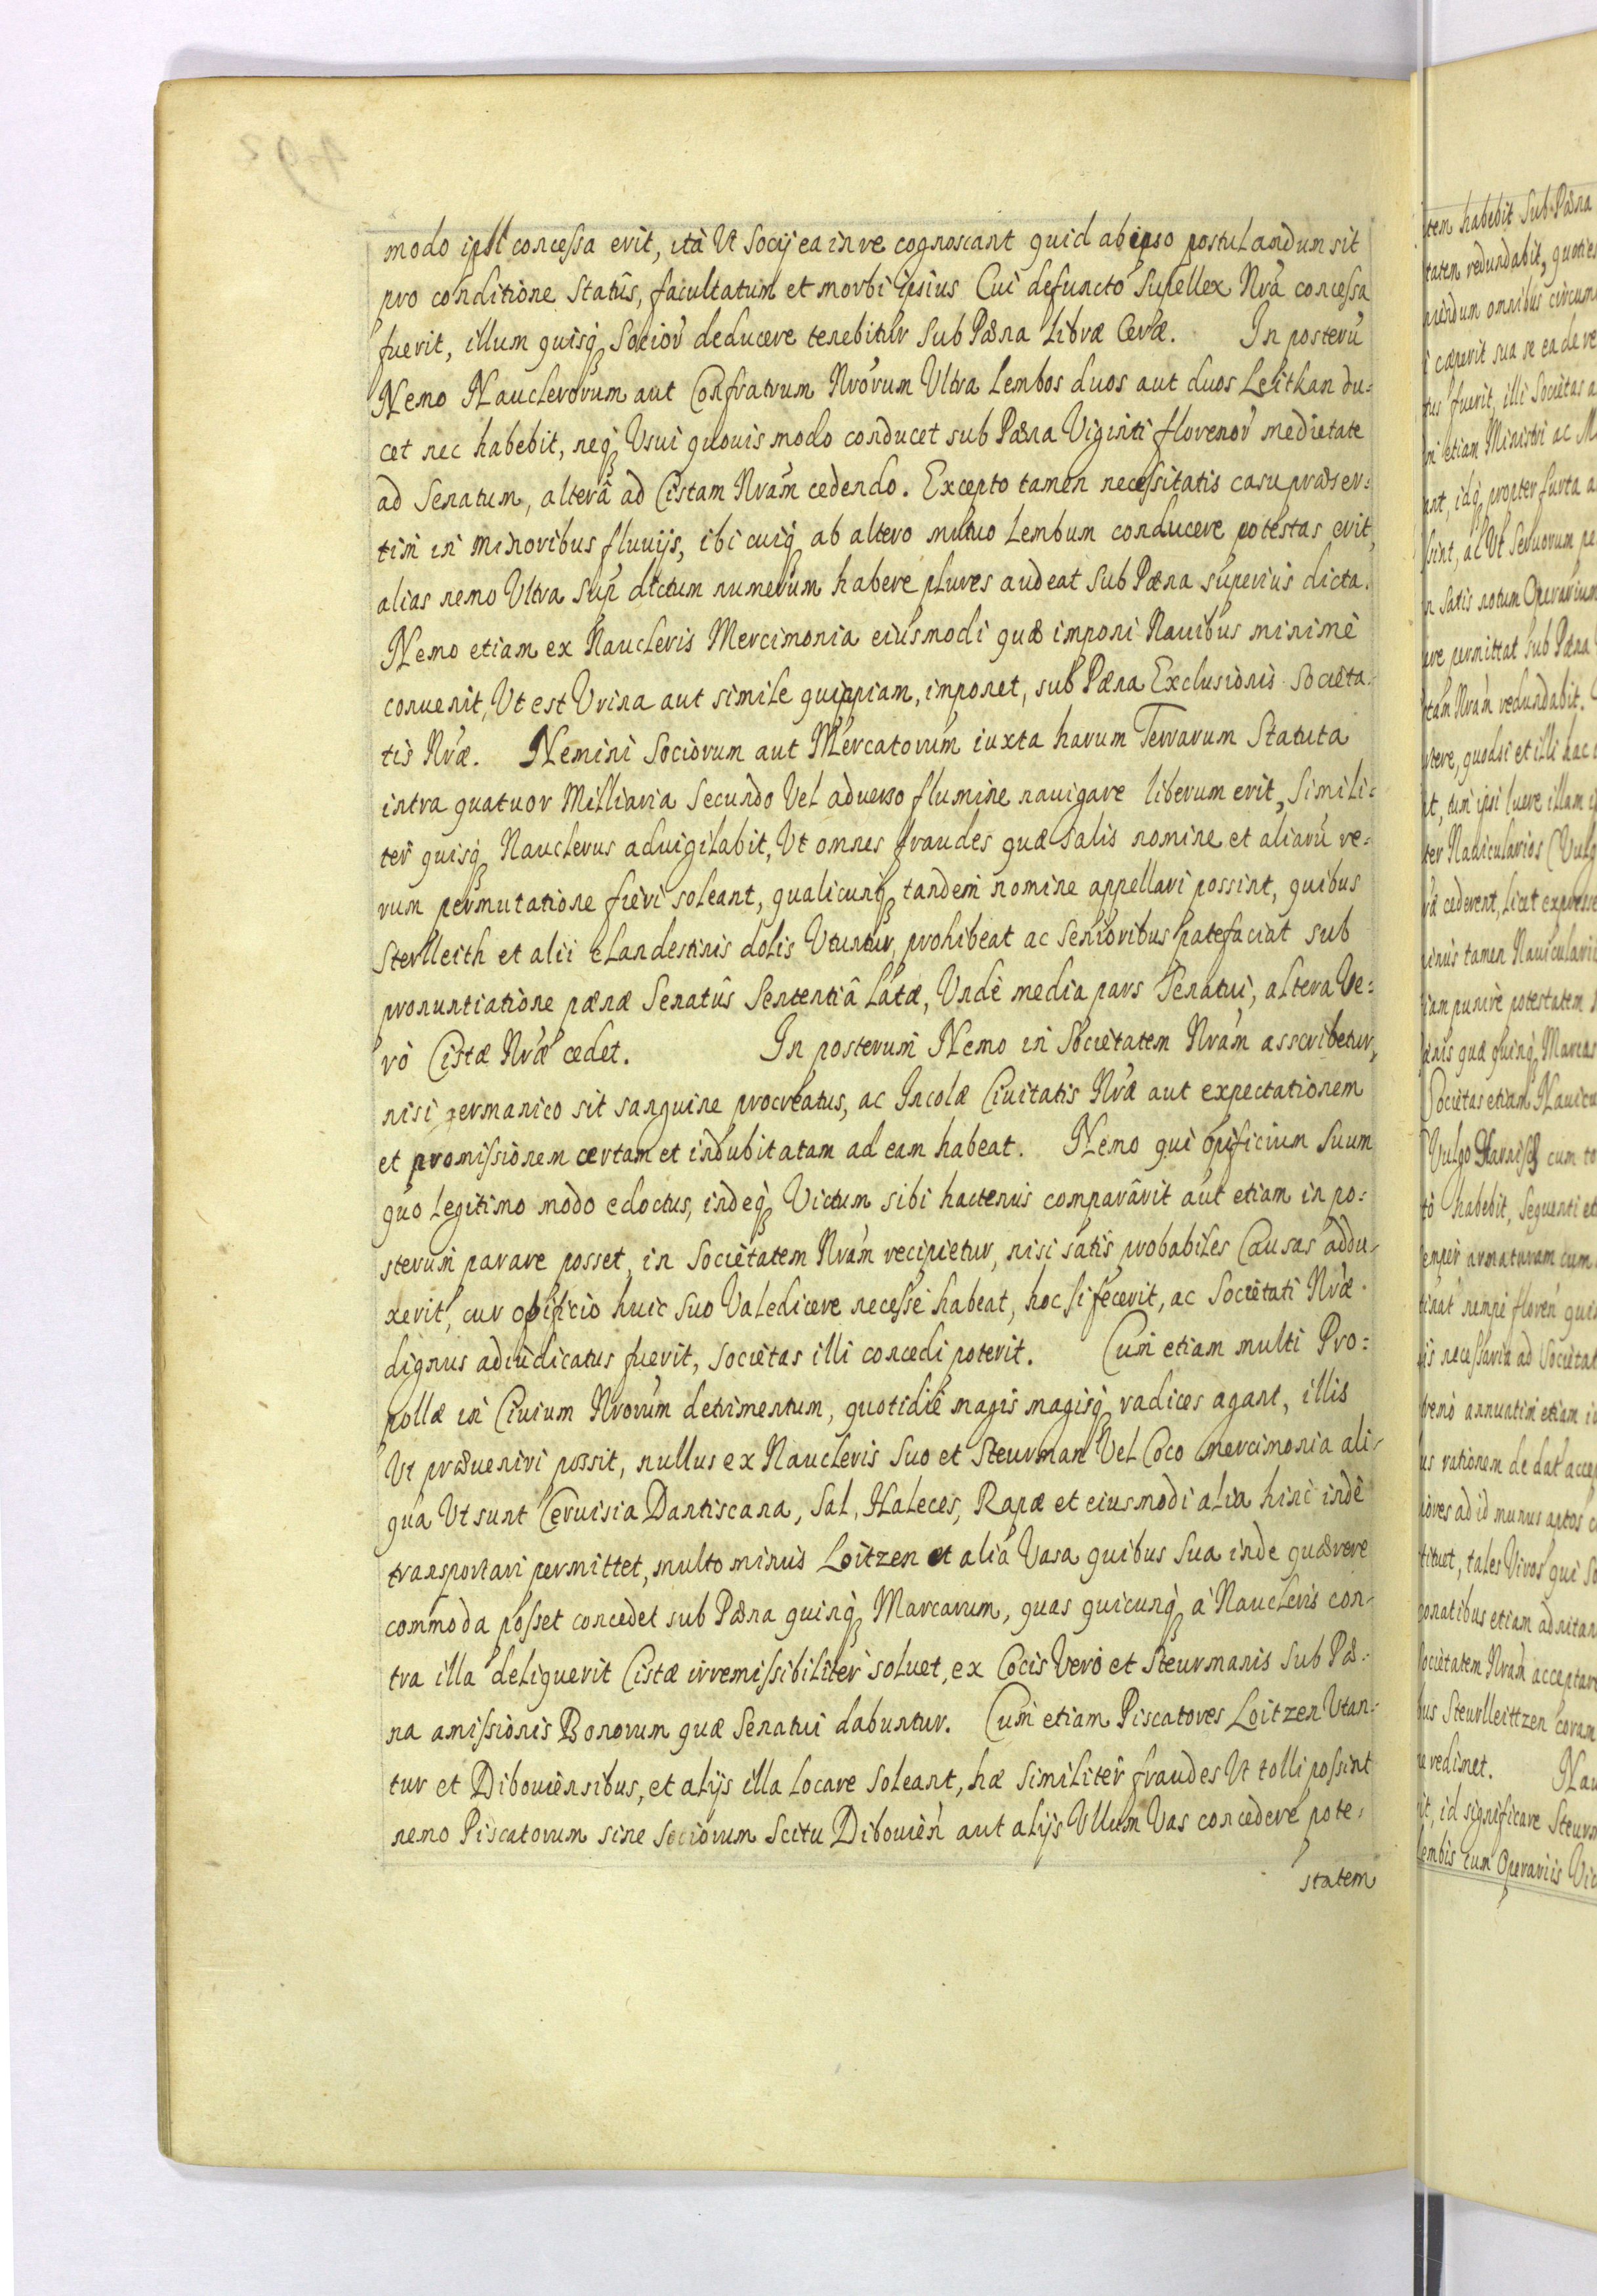 modo ipsi concessa erit, ità Ut Socij ea in re cognoscant quid ab ipso postulandum sit
pro conditione Statûs, facultatum et morbi ipsius Cui defuncto Supellex Nrã concessa
fuerit, illum quisq; Socior̃ deducere tenebitur Sub Pæna Libræ Ceræ. In posterũ
Nemo Nauclerorum aut Confratrum Nrõrum Ultra Lembos duos aut duos Leithan du=
cet nec habebit, neq; Usui quouis modo conducet sub Pæna Viginti florenor̃ medietate
ad Senatum, alterâ ad Cistam Nrãm cedendo. Excepto tamen necessitatis casu præser=
tim in minoribus fluuijs, ibi cuiq; ab altero mutuo Lembum conducere potestas erit,
alias nemo Ultra Sup̃ dictum numerum habere plures audeat Sub Pæna superius dicta.
Nemo etiam ex Naucleris Mercimonia eiusmodi quæ imponi Nauibus minimè
conuenit, Ut est Urina aut simile quippiam, imponet, sub Pæna Exclusionis Societa=
tis Nrã̃æ. Nemini Sociorum aut Mercatorum iuxta harum Terrarum Statuta
intra quatuor Milliaria Secundo Vel aduerso flumine nauigare liberum erit, Simili=
ter quisq; Nauclerus aduigilabit, Ut omnes fraudes quæ Salis nomine et aliarũ re=
rum permutatione fieri soleant, qualicunq; tandem nomine appellari possint, quibus
Sterlleith et alii clandestinis dolis Utuntur, prohibeat ac Senioribus patefaciat sub
pronuntiatione pænæ Senatûs Sententiâ Latæ, Undè media pars Senatui, altera Ve=
rò Cistæ Nrãæ cedet. In posterum Nemo in Societatem Nrãm asscribetur,
nisi germanico sit sanguine procreatus, ac Incolæ Ciuitatis Nrãæ aut expectationem
et promissionem certam et indubitatam ad eam habeat. Nemo qui opificium suum
quo legitimo modo edoctus, indeq; Victum sibi hactenus comparârit aut etiam in po=
sterum parare posset, in Societatem Nrãm recipietur, nisi satis probabiles Causas addu=
xerit, cur opificio huic Suo Valedicere necesse habeat, hoc si fecerit, ac Societati Nrãæ
dignus adiudicatus fuerit, Societas illi concedi poterit. Cum etiam multi Pro=
pollæ in Ciuium Nrõrum detrimentum, quotidiè magis magisq; radices agant, illis
Ut præueniri possit, nullus ex Naucleris Suo et Steurman Vel Coco mercimonia ali=
qua Ut sunt Ceruisia Dantiscana, Sal, Haleces, Rapæ et eiusmodi alia hinc indè
transportari permittet, multo minus Loitzen et alia Vasa quibus Sua inde quærere
commoda posset concedet sub Pæna quinq; Marcarum, quas quicunq; à Naucleris con=
tra illa deliquerit Cistæ irremissibiliter soluet, ex Cocis Verò et Steurmanis Sub Pæ=
na amissionis Bonorum quæ Senatui dabuntur. Cum etiam Piscatores Loitzen Utan=
tur et Dibouiensibus, et alijs illa locare soleant, hæ Similiter fraudes Ut tolli possint
nemo Piscatorum sine Sociorum Scitu Dibouiẽn aut alijs Ullum Vas concedere pote=
statem